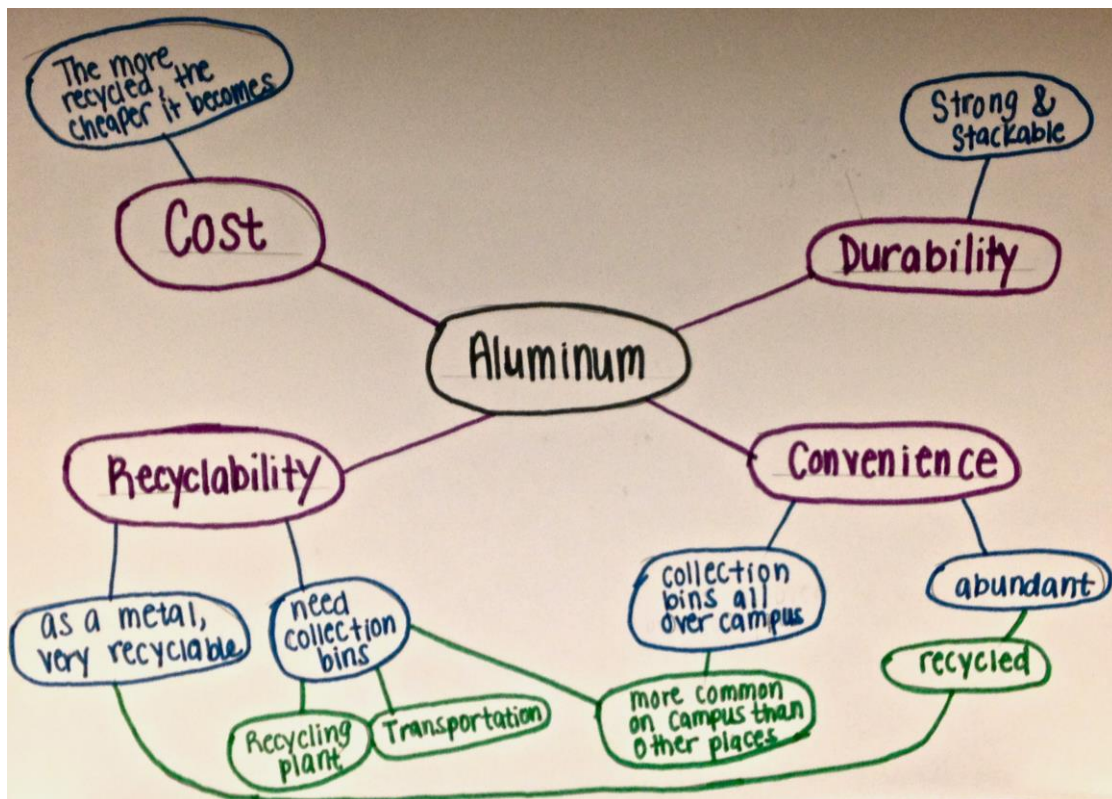 The more
recycled, the
cheaper it becomes
Strong &
stackable
Cost
Durability
Aluminum
Recyclability
Convenience
as a metal,
very recyclable
need
collection
bins
collection
bins all
over campus
abundant
recycled
Recycling
plant
Transportation
more common
on campus than
other places